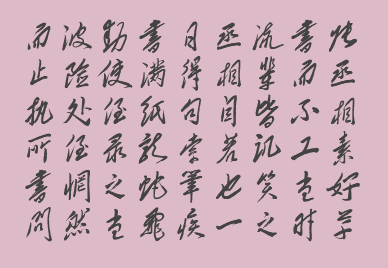 张丞相素好草
書而不工当时
流辈皆讥笑之
丞相自若也一
日得句索筆疾
書满纸龙蛇飛
动使侄录之当
波险处侄惘然
而止执所書问